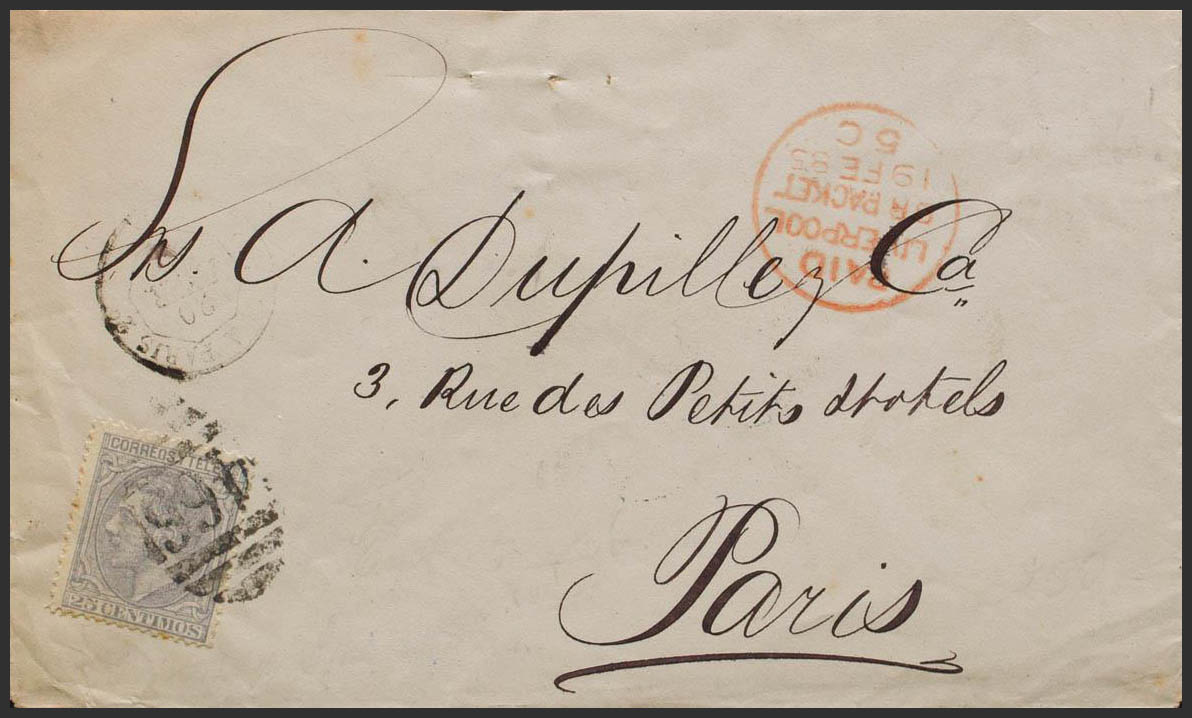 Srs. A. Dupille y Ca
3, Rue des Petits Hotels
Paris
PAID
LIVERPOOL
BR PACKET
19 FE 83
5 C
PARIS
20
CORREOS Y TELE
25 CENTIMOS